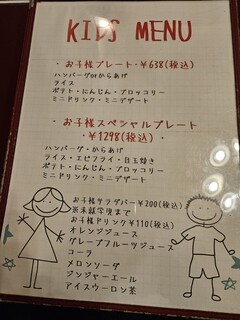 KIDS MENU
・お子様プレート・¥638(税込)
ハンバーグorからあげ
ライス
ポテト・にんじん・ブロッコリー
ミニドリンク・ミニデザート
・お子様スペシャルプレート
・¥1298(税込)・
ハンバーグ・からあげ
ライス・エビフライ・目玉焼き
ポテト・にんじん・ブロッコリー
ミニドリンク・ミニデザート
お子様サラダバー¥200(税込)
※未就学児まで
お子様ドリンク¥110(税込)
オレンジジュース
グレープフルーツジュース
コーラ
メロンソーダ
ジンジャーエール
アイスウーロン茶